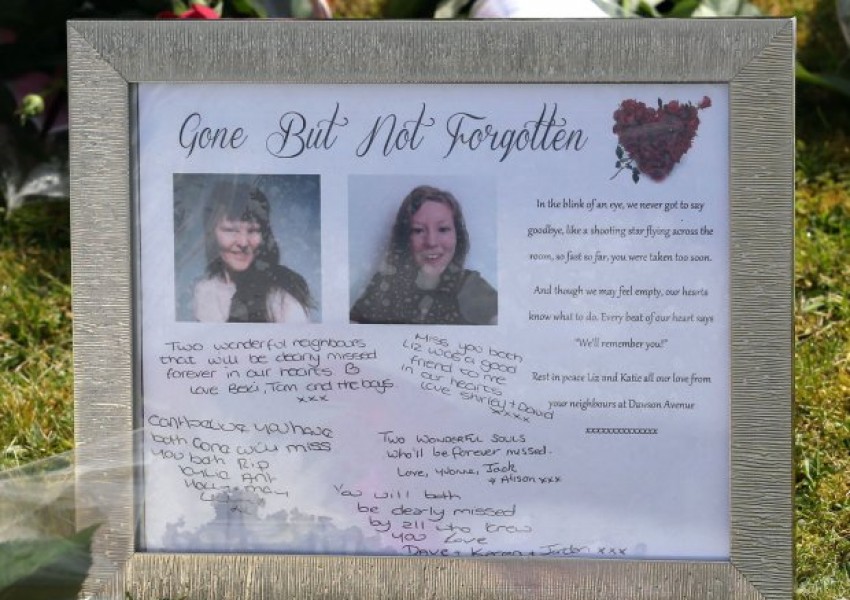 Gone But Not Forgotten
In the blink of an eye, we never got to say
goodbye, like a shooting star flying across the
room, so fast so far, you were taken too soon.
And though we may feel empty, our hearts
know what to do. Every beat of our heart says
"We'll remember you!"
Rest in peace Liz and Katie all our love from
your neighbours at Dawson Avenue
xxxxxxxxxxxxxx
Two wonderful neighbours
that will be dearly missed
forever in our hearts
Love Beki, Tom and the boys
xxx
Miss you both
Liz was a good
friend to me
in our hearts
Love Shirley + David
xxxx
Can't believe you have
both Gone will miss
you both R.i.p
Two wonderful souls
who'll be forever missed.
Love, Yvonne, Jack
+ Alison xxx
You will both
be dearly missed
by all who knew
you Love
Dave + Karen + Jordan xxx